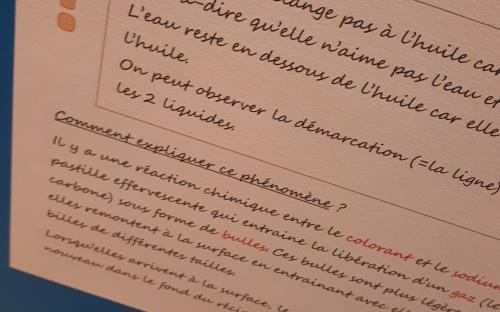 élange pas à l'huile car
-à-dire qu'elle n'aime pas l'eau et
L'eau reste en dessous de l'huile car elle
l'huile.
On peut observer la démarcation (=la ligne)
les 2 liquides.
Comment expliquer ce phénomène ?
Il y a une réaction chimique entre le colorant et le sodium
pastille effervescente qui entraine la libération d'un gaz (le
carbone) sous forme de bulles. Ces bulles sont plus légère
elles remontent à la surface en entraînant avec elle
billes de différentes tailles.
Lorsqu'elles arrivent à la surface, le
nouveau dans le fond du réci